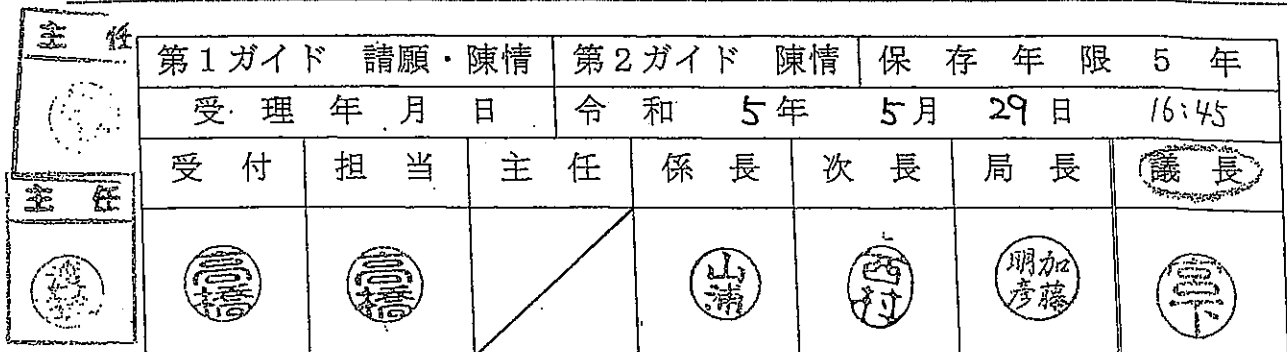 主任
第1ガイド 請願・陳情 第2ガイド 陳情 保存年限 5年
受理年月日 令和 5年 5月 29日 16:45
受付 担当 主任 係長 次長 局長 議長
主任
高橋 高橋 山浦 西村 加藤明彦 宮下